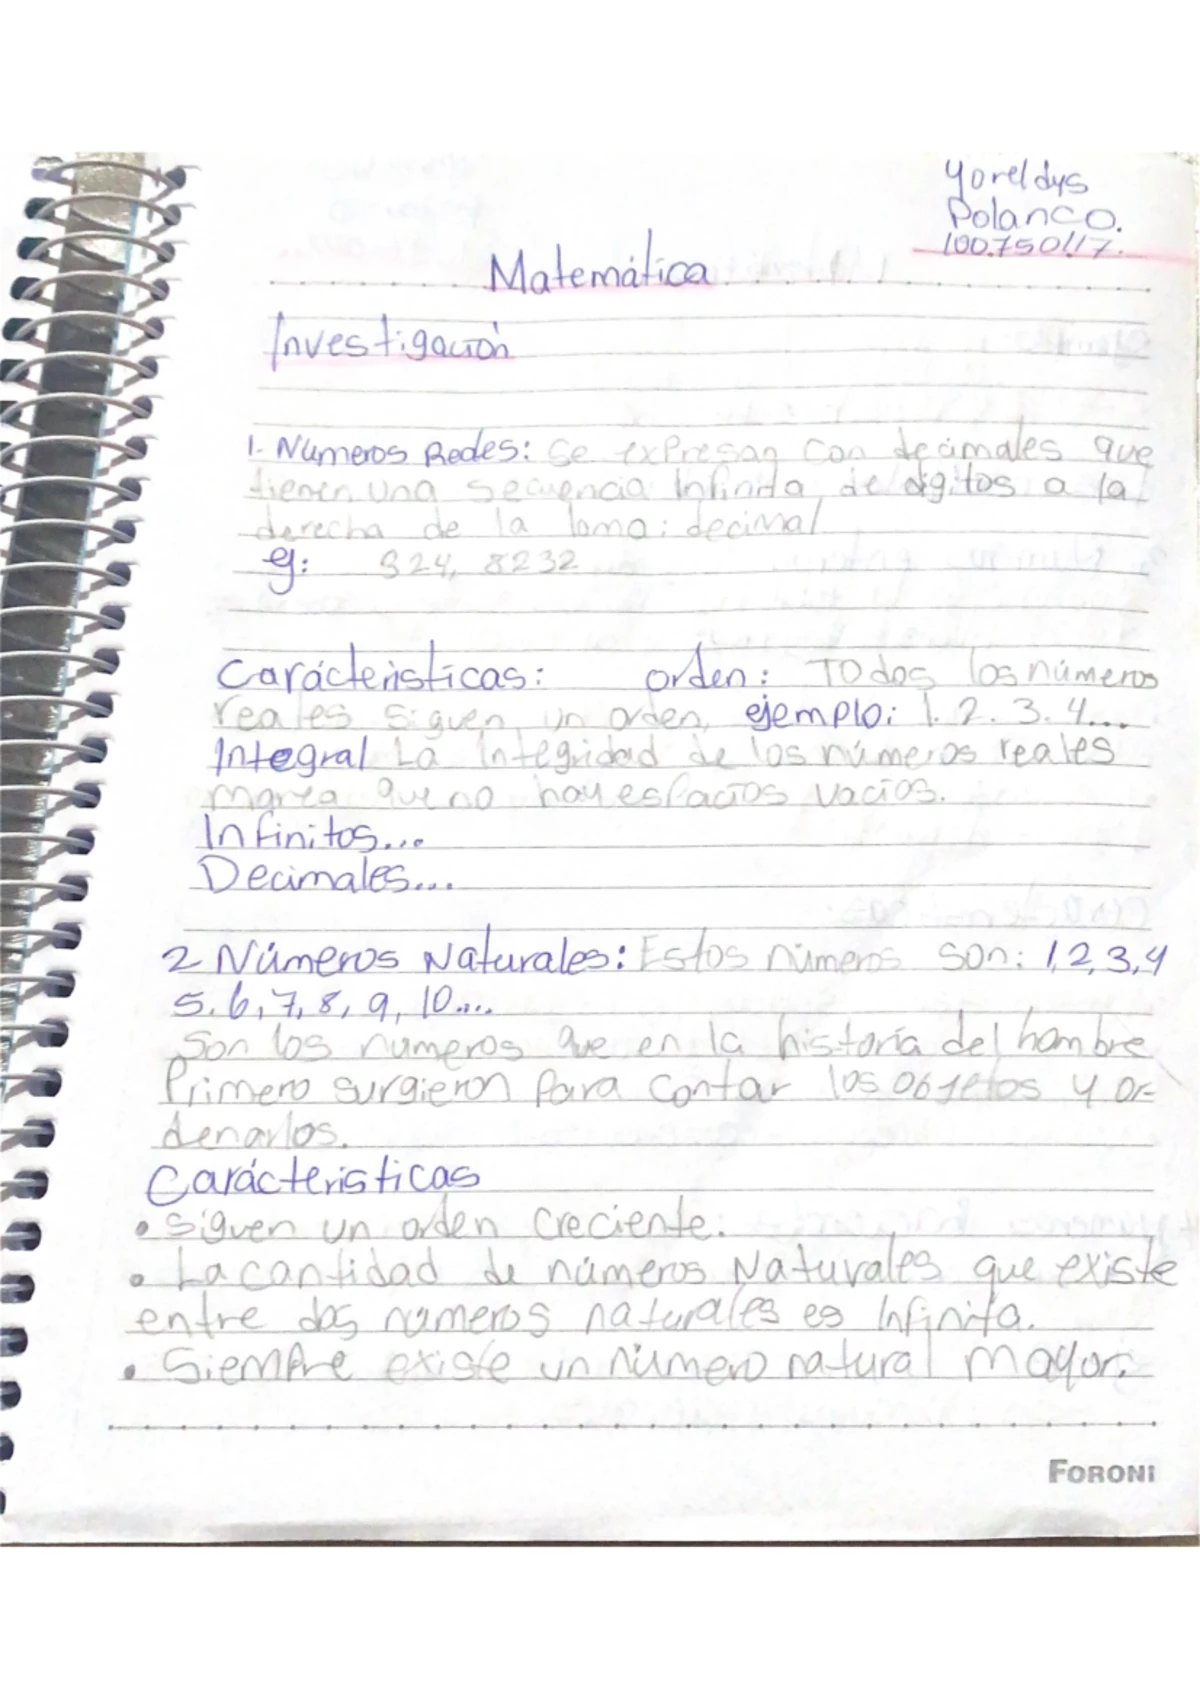 Yoreldys
Polanco.
100.750117.
Matemática
Investigación
1. Números Reales: Se expresan con decimales que
tienen una secuencia infinita de digitos a la
derecha de la coma: decimal
ej: 324, 8232
Carácteristicas: orden: Todos los números
reales siguen un orden, ejemplo: 1. 2. 3. 4...
Integral La integridad de los números reales
marca que no hay espacios vacios.
Infinitos...
Decimales...
2 Números Naturales: Estos números son: 1,2,3,4
5,6,7,8,9,10....
Son los números que en la historia del hombre
Primero surgieron para contar los objetos y or-
denarlos.
Carácteristicas
• Siguen un orden creciente.
• La cantidad de números Naturales que existe
entre dos números naturales es Infinita.
• Siempre existe un número natural mayor.
FORONI